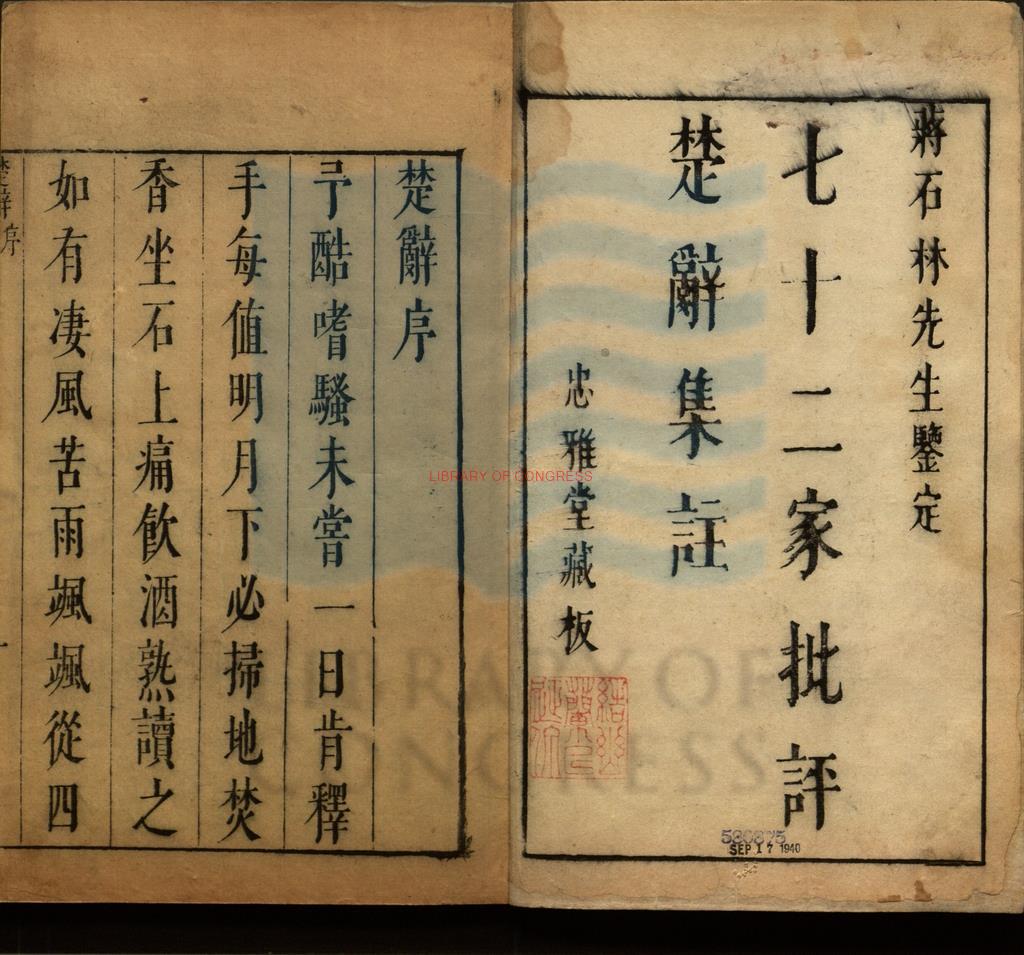 蔣石林先生鑒定
七十二家批評
楚辭集註
忠雅堂藏板
580875
SEP 17 1940
楚辭序
予酷嗜騷未嘗一日肯釋
手每值明月下必掃地焚
香坐石上痛飲酒熟讀之
如有凄風苦雨颯颯從四
楚辭序
一
LIBRARY OF CONGRESS
LIBRARY OF
CONGRESS